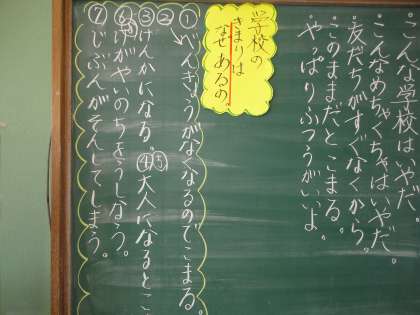 こんな学校はいやだ。
・こんなめちゃくちゃはいやだ。
・友だちがすくなくから。
・このままだとこまる。
・やっぱりふつうがいいよ。
学校の
きまりは
なぜあるの。
①べんきょうがなくなるのでこまる。
②
③けんかになる。④⑤大人になるとこ
⑥けがやいのちをうしなう。
⑦じぶんがそんしてしまう。